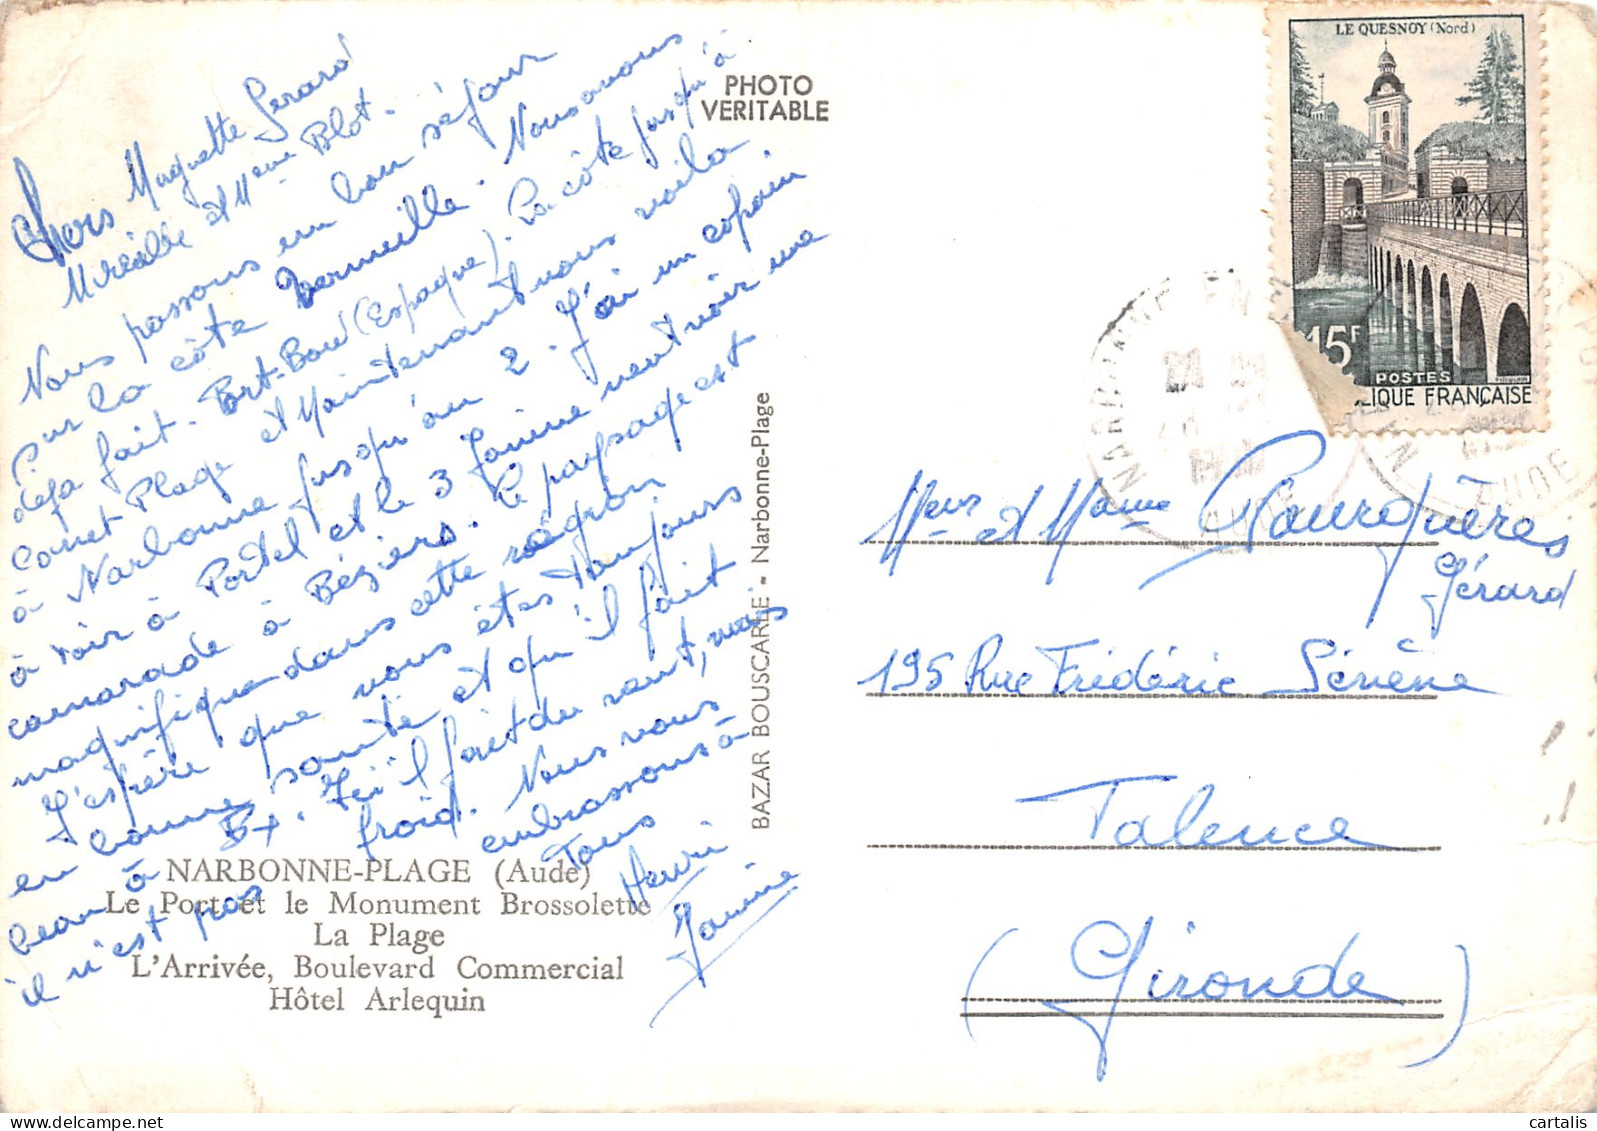 Chers Muguette Gérard
Mireille et Mme Blot.
Nous passons un bon séjour
sur la côte Vermeille. Nous avons
déja fait. Port-Bou (Espagne). La côte jusqu'à
Canet Plage et Maintenant nous voila
à Narbonne jusqu'au 2. J'ai un copain
à voir à Portel et le 3 Janine veut voir une
camarade à Béziers. Le paysage est
magnifique dans cette région
J'espère que vous êtes toujours
en bonne santé et qu'il fait
beau à Bx. Ici il fait du vent, mais
il n'est pas froid. Nous vous
embrassons à
Tous
Henri
Janine
NARBONNE-PLAGE (Aude)
Le Port et le Monument Brossolette
La Plage
L'Arrivée, Boulevard Commercial
Hôtel Arlequin
PHOTO
VERITABLE
BAZAR BOUSCARLE - Narbonne-Plage
LE QUESNOY (Nord)
15F
POSTES
LIQUE FRANÇAISE
NARBONNE
AUDE
Meur et Mame Faurguères
Gérard
195 Rue Frédéric Sévène
Talence
(Gironde)
cartalis